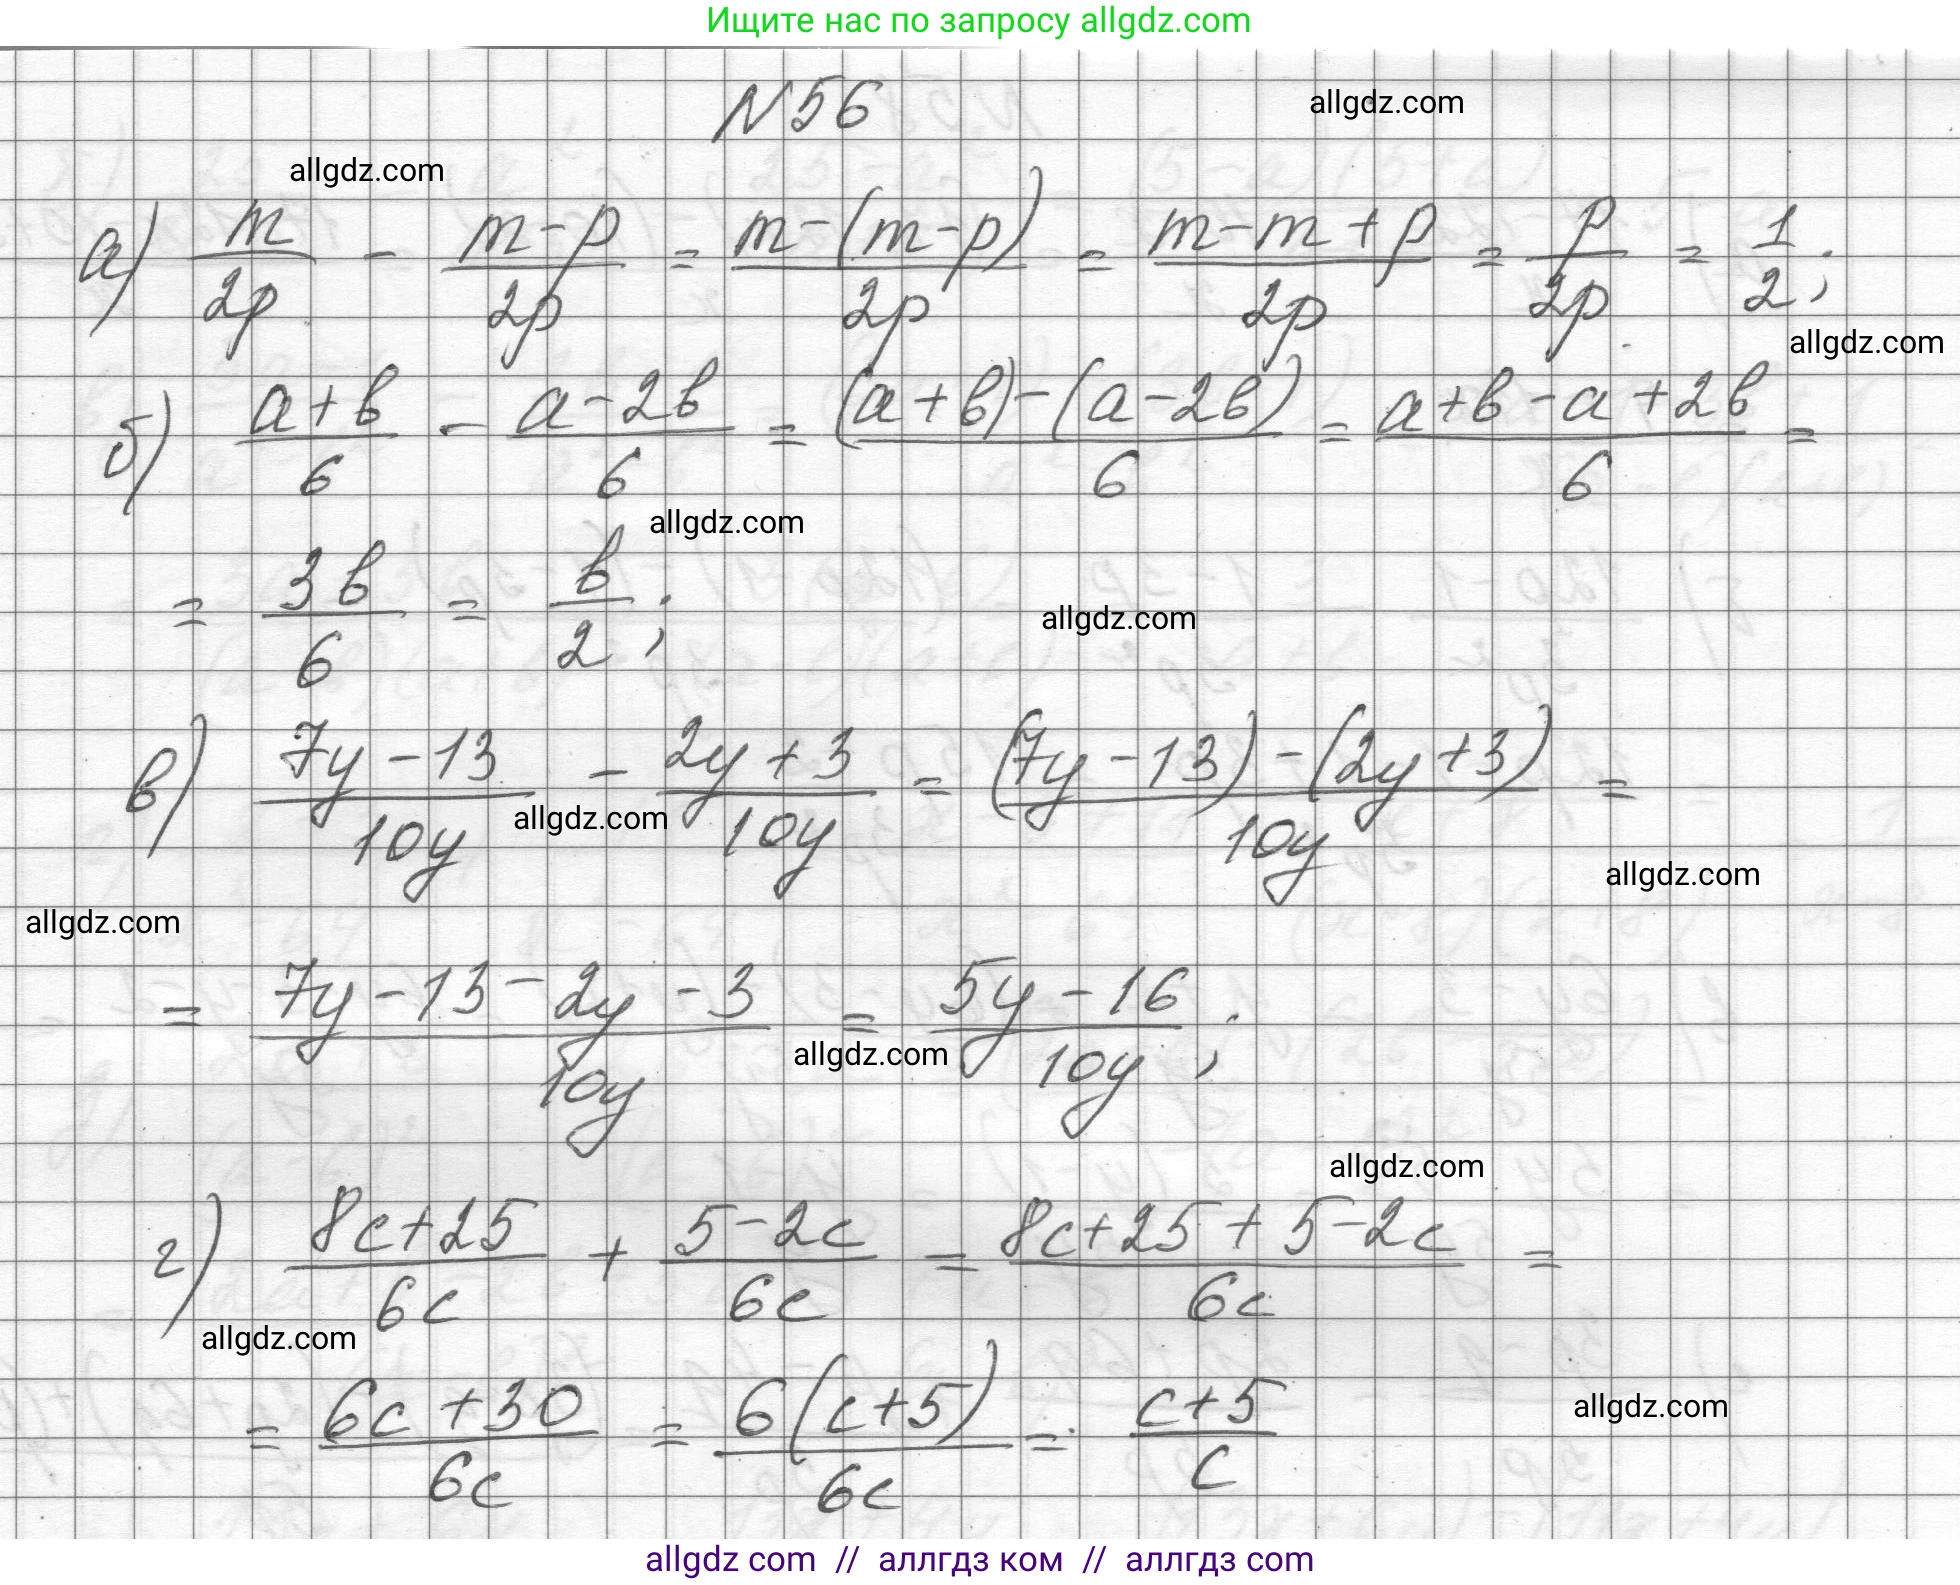 Ищите нас по запросу allgdz.com
N56
allgdz.com
allgdz.com
а) m/2p - (m-p)/2p = (m-(m-p))/2p = (m-m+p)/2p = p/2p = 1/2;
allgdz.com
б) (a+b)/6 - (a-2b)/6 = ((a+b)-(a-2b))/6 = (a+b-a+2b)/6 =
allgdz.com
= 3b/6 = b/2;
allgdz.com
в) (7y-13)/10y - (2y+3)/10y = ((7y-13)-(2y+3))/10y =
allgdz.com
allgdz.com
allgdz.com
= (7y-13-2y-3)/10y = (5y-16)/10y;
allgdz.com
allgdz.com
г) (8c+25)/6c + (5-2c)/6c = (8c+25+5-2c)/6c =
allgdz.com
= (6c+30)/6c = 6(c+5)/6c = (c+5)/c
allgdz.com
allgdz com // аллгдз ком // аллгдз com